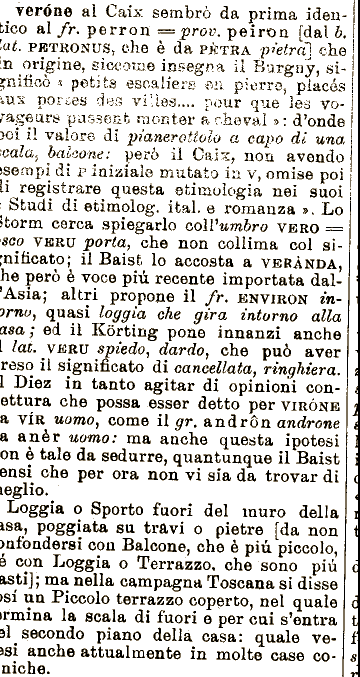 veróne al Caix sembrò da prima iden-
tico al fr. perron = prov. peiron [dal b.
lat. PETRONUS, che è da PÈTRA pietra] che
in origine, siccome insegna il Burguy, si-
gnificò « petits escaliers en pierre, placés
aux portes des villes.... pour que les vo-
yageurs pussent monter a cheval »: d'onde
poi il valore di pianerottolo a capo di una
scala, balcone: però il Caix, non avendo
esempi di P iniziale mutato in V, omise poi
di registrare questa etimologia nei suoi
« Studi di etimolog. ital. e romanza ». Lo
Storm cerca spiegarlo coll'umbro VERO =
osco VERU porta, che non collima col si-
gnificato; il Baist lo accosta a VERÀNDA,
che però è voce piú recente importata dal-
l'Asia; altri propone il fr. ENVIRON in-
torno, quasi loggia che gira intorno alla
casa; ed il Körting pone innanzi anche
il lat. VERU spiedo, dardo, che può aver
preso il significato di cancellata, ringhiera.
Il Diez in tanto agitar di opinioni con-
gettura che possa esser detto per VIRÓNE
da VÍR uomo, come il gr. andrôn androne
da anêr uomo: ma anche questa ipotesi
non è tale da sedurre, quantunque il Baist
pensi che per ora non vi sia da trovar di
meglio.
Loggia o Sporto fuori del muro della
casa, poggiata su travi o pietre [da non
confondersi con Balcone, che è piú piccolo,
né con Loggia o Terrazzo, che sono piú
vasti]; ma nella campagna Toscana si disse
cosí un Piccolo terrazzo coperto, nel quale
termina la scala di fuori e per cui s'entra
nel secondo piano della casa: quale ve-
desi anche attualmente in molte case co-
loniche.